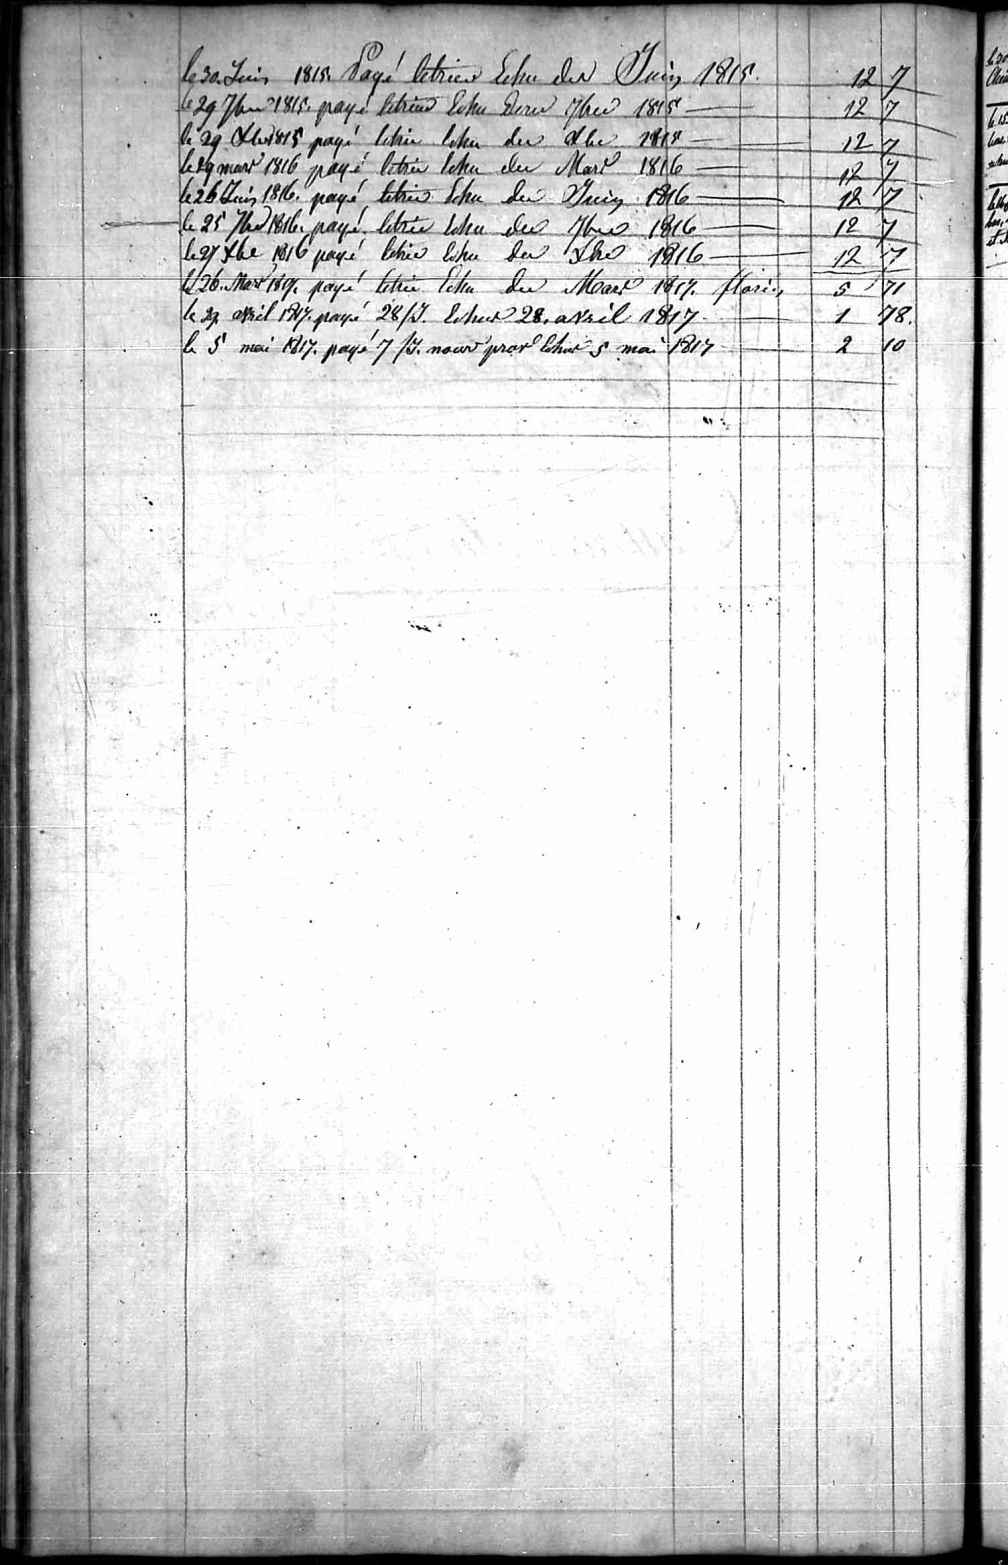 le 30. Juin 1815. Payé letrime Echu du Juin 1815. 12 7
le 29 7bre 1815. payé letrime Echu dud 7bre 1815 12 7
le 29 Xbre 1815 payé letrim Echu du Xbre 1815 12 7
le 29 mars 1816 payé letrim Echu du Mars 1816 12 7
le 26 Juin 1816. payé letrim Echu du Juin 1816 12 7
le 25 7bre 1816. payé letrim Echu du 7bre 1816 12 7
le 27 Xbre 1816 payé letrim Echu du Xbre 1816 12 7
le 26. Mars 1817. payé letrim Echu du Mars 1817. florins 5 71
le 29 avril 1817. payé 28/J. Echus 28. avril 1817 1 78.
le 5 mai 1817. payé 7/J. Echus 5 mai 1817 2 10